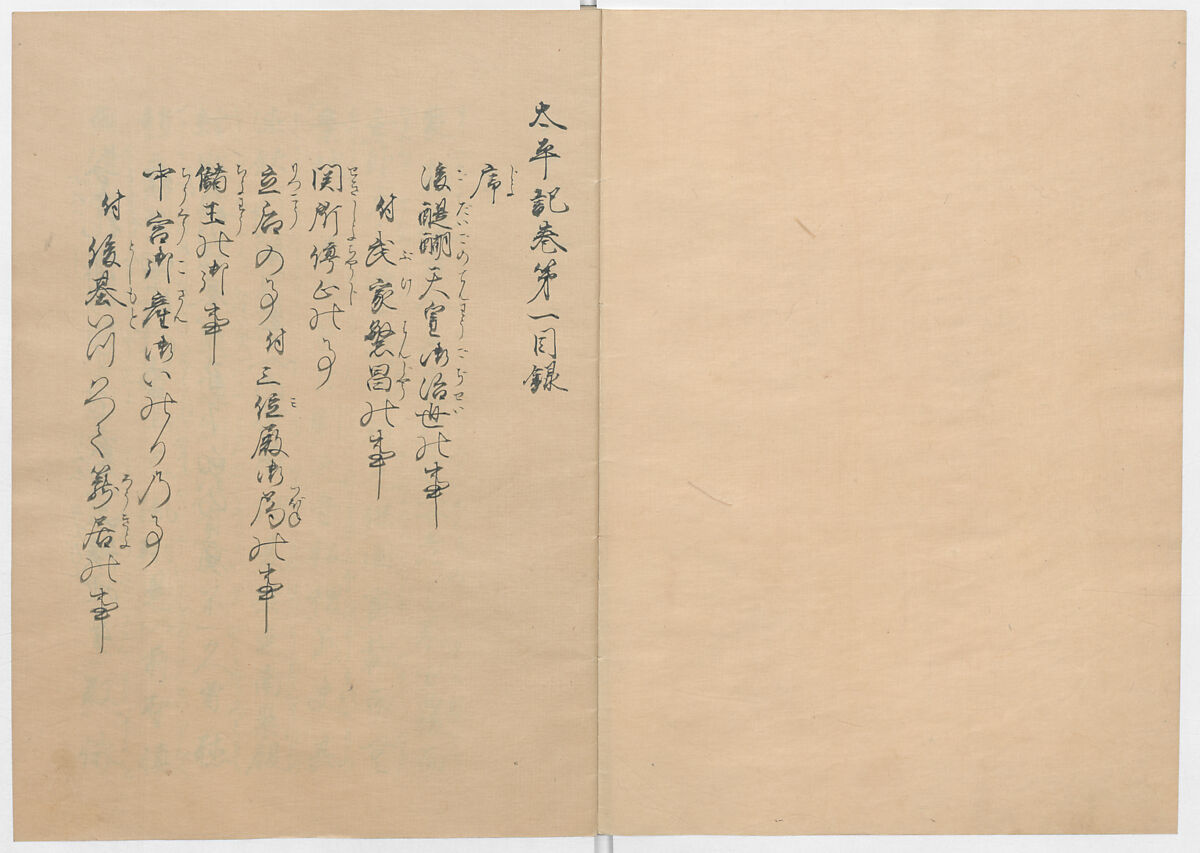 太平記巻第一目録
序
後醍醐天皇御治世の事
付武家繁昌の事
関所停止の事
立后の事付三位殿御局の事
儲王の御事
中宮御産御いのりの事
付俊基いつはつて籠居の事